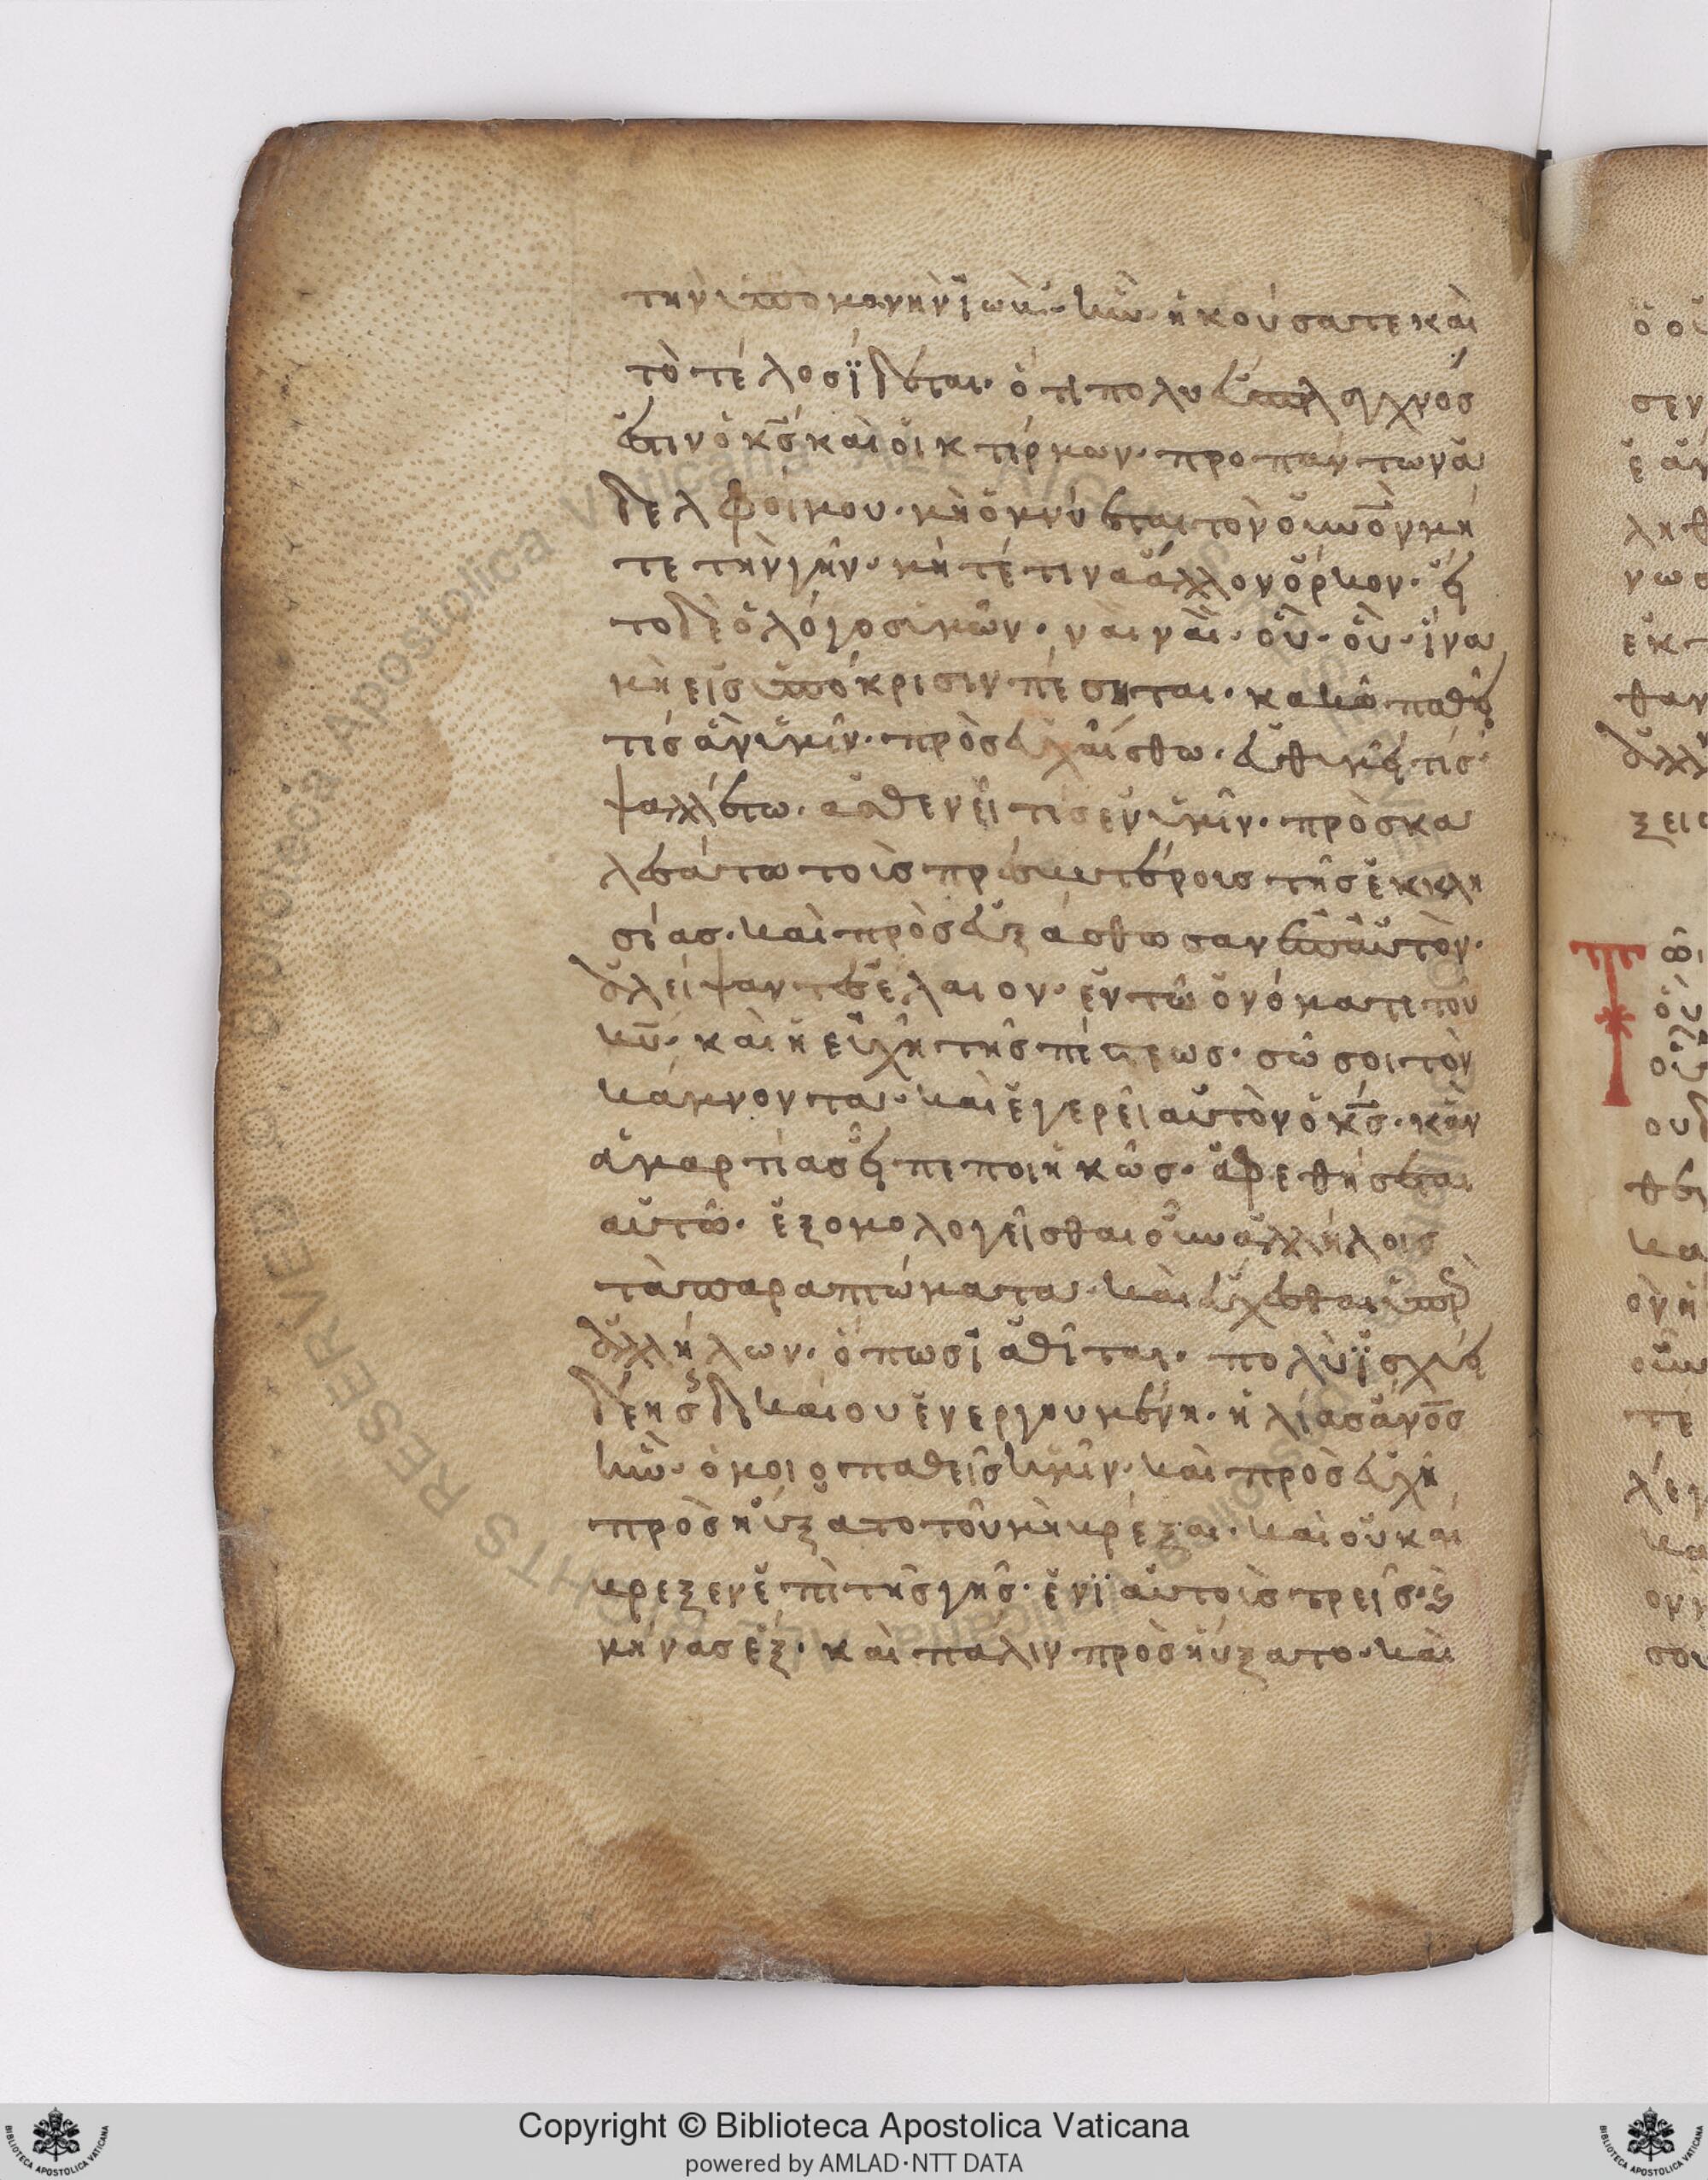 τὴν ὑπομονὴν ἰὼβ· ἰὼβ ἠκούσατε καὶ
τὸ τέλος ἴδεται· ὅτι πολυεύσπλαγχνός
ἐστιν ὁ κς καὶ οἰκτίρμων· προ πάντων ἀ
δελφοί μου· μὴ ὀμνύεται τὸν οὐνον μή
τε τὴν γῆν· μή τέ τινα ἄλλον ὅρκον· ἔς
το δὲ ὁ λόγος ὑμῶν· ναὶ ναὶ· οὒ· οὒ· ἵνα
μὴ εἰς ὑπόκρισιν πέσηται· κακοπαθεῖ
τίς ἐν ὑμῖν· πρὸσευχέσθω· εὐθυμεῖ τίς·
ψαλλέτω· ἀσθενεῖ τίς ἐν ὑμῖν· πρὸσκα
λεσάτω τοὶς πρεσβυτέροις τῆς ἐκκλη
σίας· καὶ πρὸσευξάσθωσαν ἐπ αὐτὸν·
ἀλείψαντες ἔλαιον· ἐν τῶ ὀνόματι τοῦ
κυ· καὶ ἡ εὐχὴ τῆς πίστεως· σώσοι τὸν
κάμνοντα· καὶ ἐγερεῖ αὐτὸν ὁ κς· κἂν
ἁμαρτίας ἦ πεποιηκῶς· ἀφεθήσεται
αὐτῶ· ἐξομολογεῖσθαι οὖν ἀλλήλοις
τὰ παραπτώματα· καὶ εὔχεσθαι ὑπὲρ
ἀλλήλων· ὅπως ἰαθῆται· πολὺ ἰσχύει
δέησις δικαίου ἐνεργουμένη· ἠλίας ἀνος
ἦν· ὁμοιοπαθεὶς ἡμῖν· καὶ πρὸσευχῆ
πρὸσηύξατο τοῦ μὴ βρέξαι· καὶ οὐκ αι
βρεξεν ἐπὶ τῆς γῆς· ἐνϊαυτοὶς τρεῖς· κ
μήνας ἕξ· καὶ παλιν πρὸσηύξατο· καὶ
Copyright © Biblioteca Apostolica Vaticana
powered by AMLAD·NTT DATA